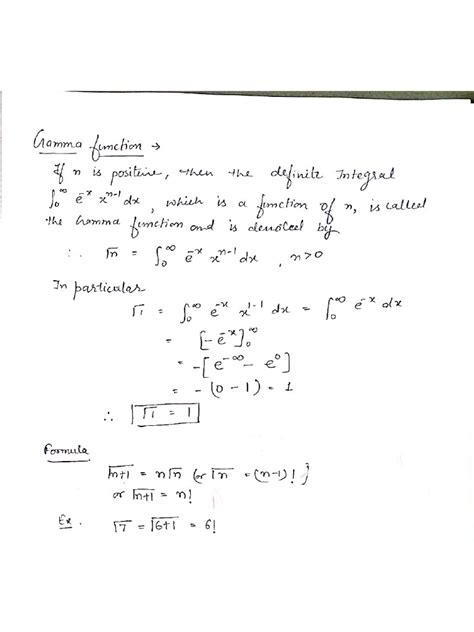 Gamma function →
If n is positive, then the definite Integral
∫₀^∞ e^-x x^n-1 dx, which is a function of n, is called
the Gamma function and is denoted by
∴ Γn = ∫₀^∞ e^-x x^n-1 dx , n>0
In particular
Γ1 = ∫₀^∞ e^-x x^1-1 dx = ∫₀^∞ e^-x dx
= [-e^-x]₀^∞
= -[e^-∞ - e^0]
= -(0-1) = 1
∴ Γ1 = 1
Formula
Γn+1 = nΓn (or Γn = (n-1)! }
or Γn+1 = n!
Ex. Γ7 = Γ6+1 = 6!